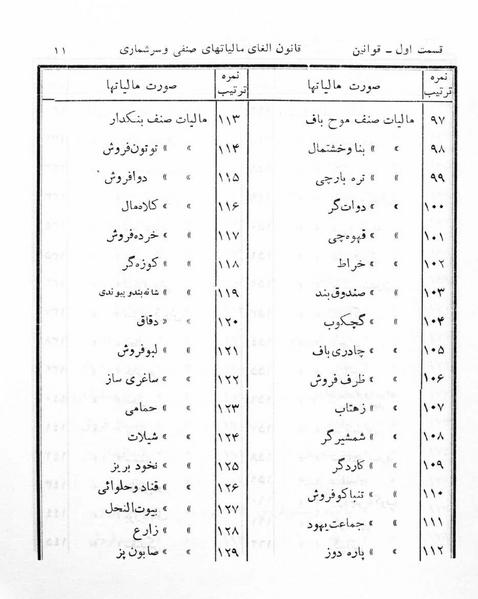 قسمت اول ـ قوانین قانون الغای مالیاتهای صنفی وسرشماری ۱۱
نمره ترتیب صورت مالیاتها
۹۷ مالیات صنف موج باف
۹۸ » » بنا وخشتمال
۹۹ » » تره بارچی
۱۰۰ » » دوات گر
۱۰۱ » » قهوه چی
۱۰۲ » » خراط
۱۰۳ » » صندوق بند
۱۰۴ » » گچکوب
۱۰۵ » » چادری باف
۱۰۶ » » ظرف فروش
۱۰۷ » » زهتاب
۱۰۸ » » شمشیر گر
۱۰۹ » » کاردگر
۱۱۰ » » تنباکو فروش
۱۱۱ » » جماعت یهود
۱۱۲ » » پاره دوز
نمره ترتیب صورت مالیاتها
۱۱۳ مالیات صنف بنکدار
۱۱۴ » » توتون فروش
۱۱۵ » » دوافروش
۱۱۶ » » کلاه مال
۱۱۷ » » خرده فروش
۱۱۸ » » کوزه گر
۱۱۹ » » شانه بند و پیوندی
۱۲۰ » » دقاق
۱۲۱ » » لبو فروش
۱۲۲ » » ساغری ساز
۱۲۳ » » حمامی
۱۲۴ » » شیلات
۱۲۵ » » نخود بریز
۱۲۶ » » قناد و حلوائی
۱۲۷ » » بیوت النحل
۱۲۸ » » زارع
۱۲۹ » » صابون پز